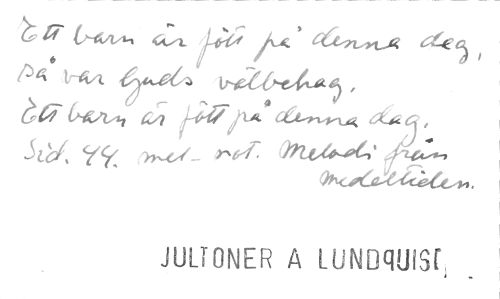 Ett barn är fött på denna dag,
så var Guds välbehag.
Ett barn är fött på denna dag.
Sid. 44. mel-not. Melodi från
medeltiden.
JULTONER A LUNDQUIST,